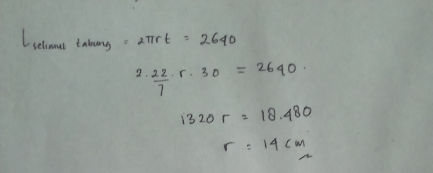 L selimut tabung = 2πrt = 2640
2 . 22/7 . r . 30 = 2640.
1320 r = 18.480
r = 14 cm